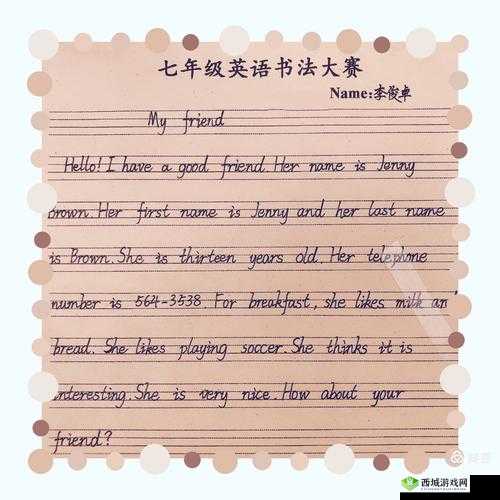 七年级英语书法大赛
Name:李俊卓
My friend
Hello! I have a good friend. Her name is Jenny
Brown. Her first name is Jenny and her last name
is Brown. She is thirteen years old. Her telephone
number is 564-3538. For breakfast, she likes milk an
bread. She likes playing soccer. She thinks it is
interesting. She is very nice. How about your
friend?
西域游戏网